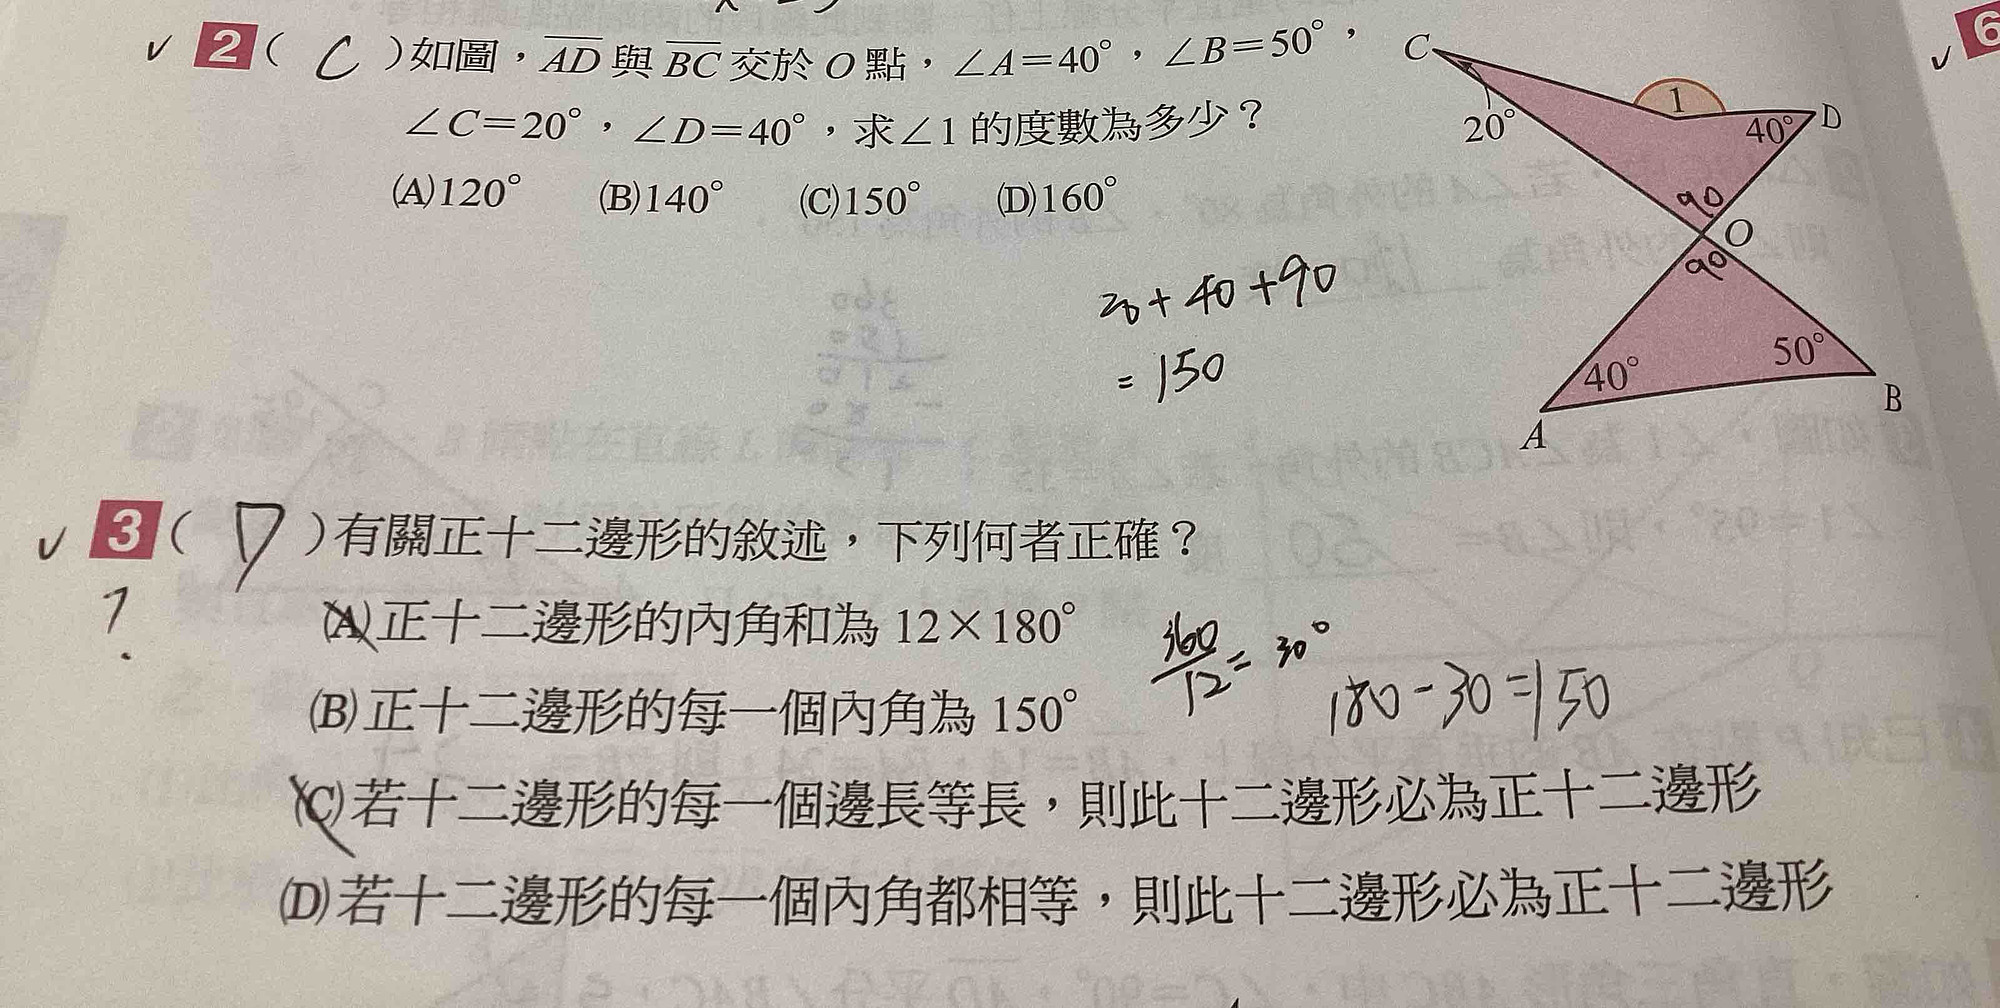 2 ( C ) 如圖，AD 與 BC 交於 O 點，∠A＝40°，∠B＝50°，
∠C＝20°，∠D＝40°，求∠1 的度數為多少？
(A)120° (B)140° (C)150° (D)160°
C
1
D
20°
40°
90
O
90
40°
50°
A
B
20+40+90
=150
6
3 ( D ) 有關正十二邊形的敘述，下列何者正確？
?
(A)正十二邊形的內角和為 12×180°
(B)正十二邊形的每一個內角為 150°
360/12=30°
180-30=150
(C)若十二邊形的每一個邊長等長，則此十二邊形必為正十二邊形
(D)若十二邊形的每一個內角都相等，則此十二邊形必為正十二邊形